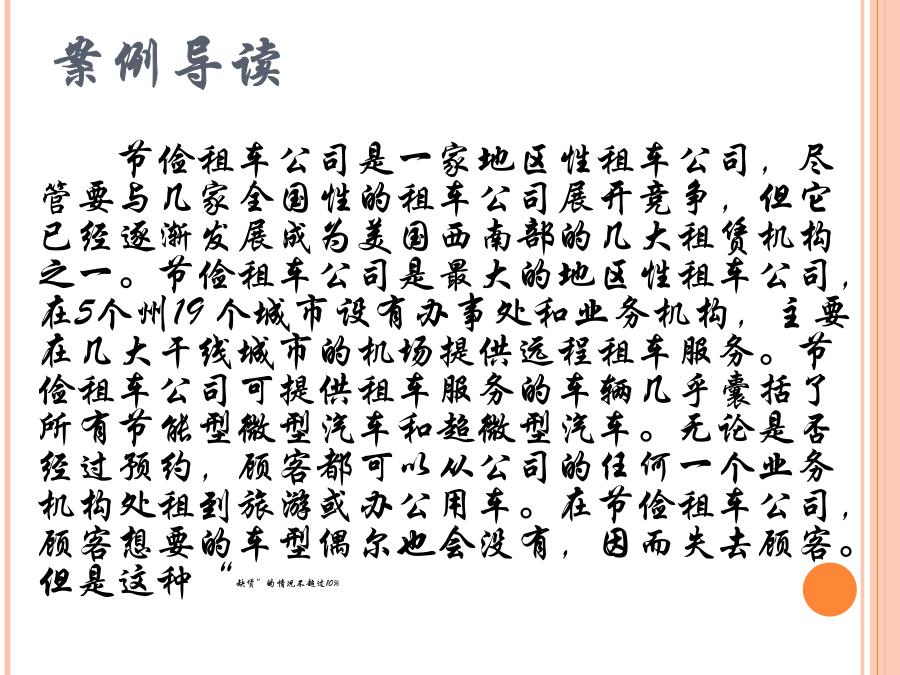 案例导读
节俭租车公司是一家地区性租车公司，尽
管要与几家全国性的租车公司展开竞争，但它
已经逐渐发展成为美国西南部的几大租赁机构
之一。节俭租车公司是最大的地区性租车公司，
在5个州19个城市设有办事处和业务机构，主要
在几大干线城市的机场提供远程租车服务。节
俭租车公司可提供租车服务的车辆几乎囊括了
所有节能型微型汽车和超微型汽车。无论是否
经过预约，顾客都可以从公司的任何一个业务
机构处租到旅游或办公用车。在节俭租车公司，
顾客想要的车型偶尔也会没有，因而失去顾客。
但是这种“缺货”的情况不超过10%